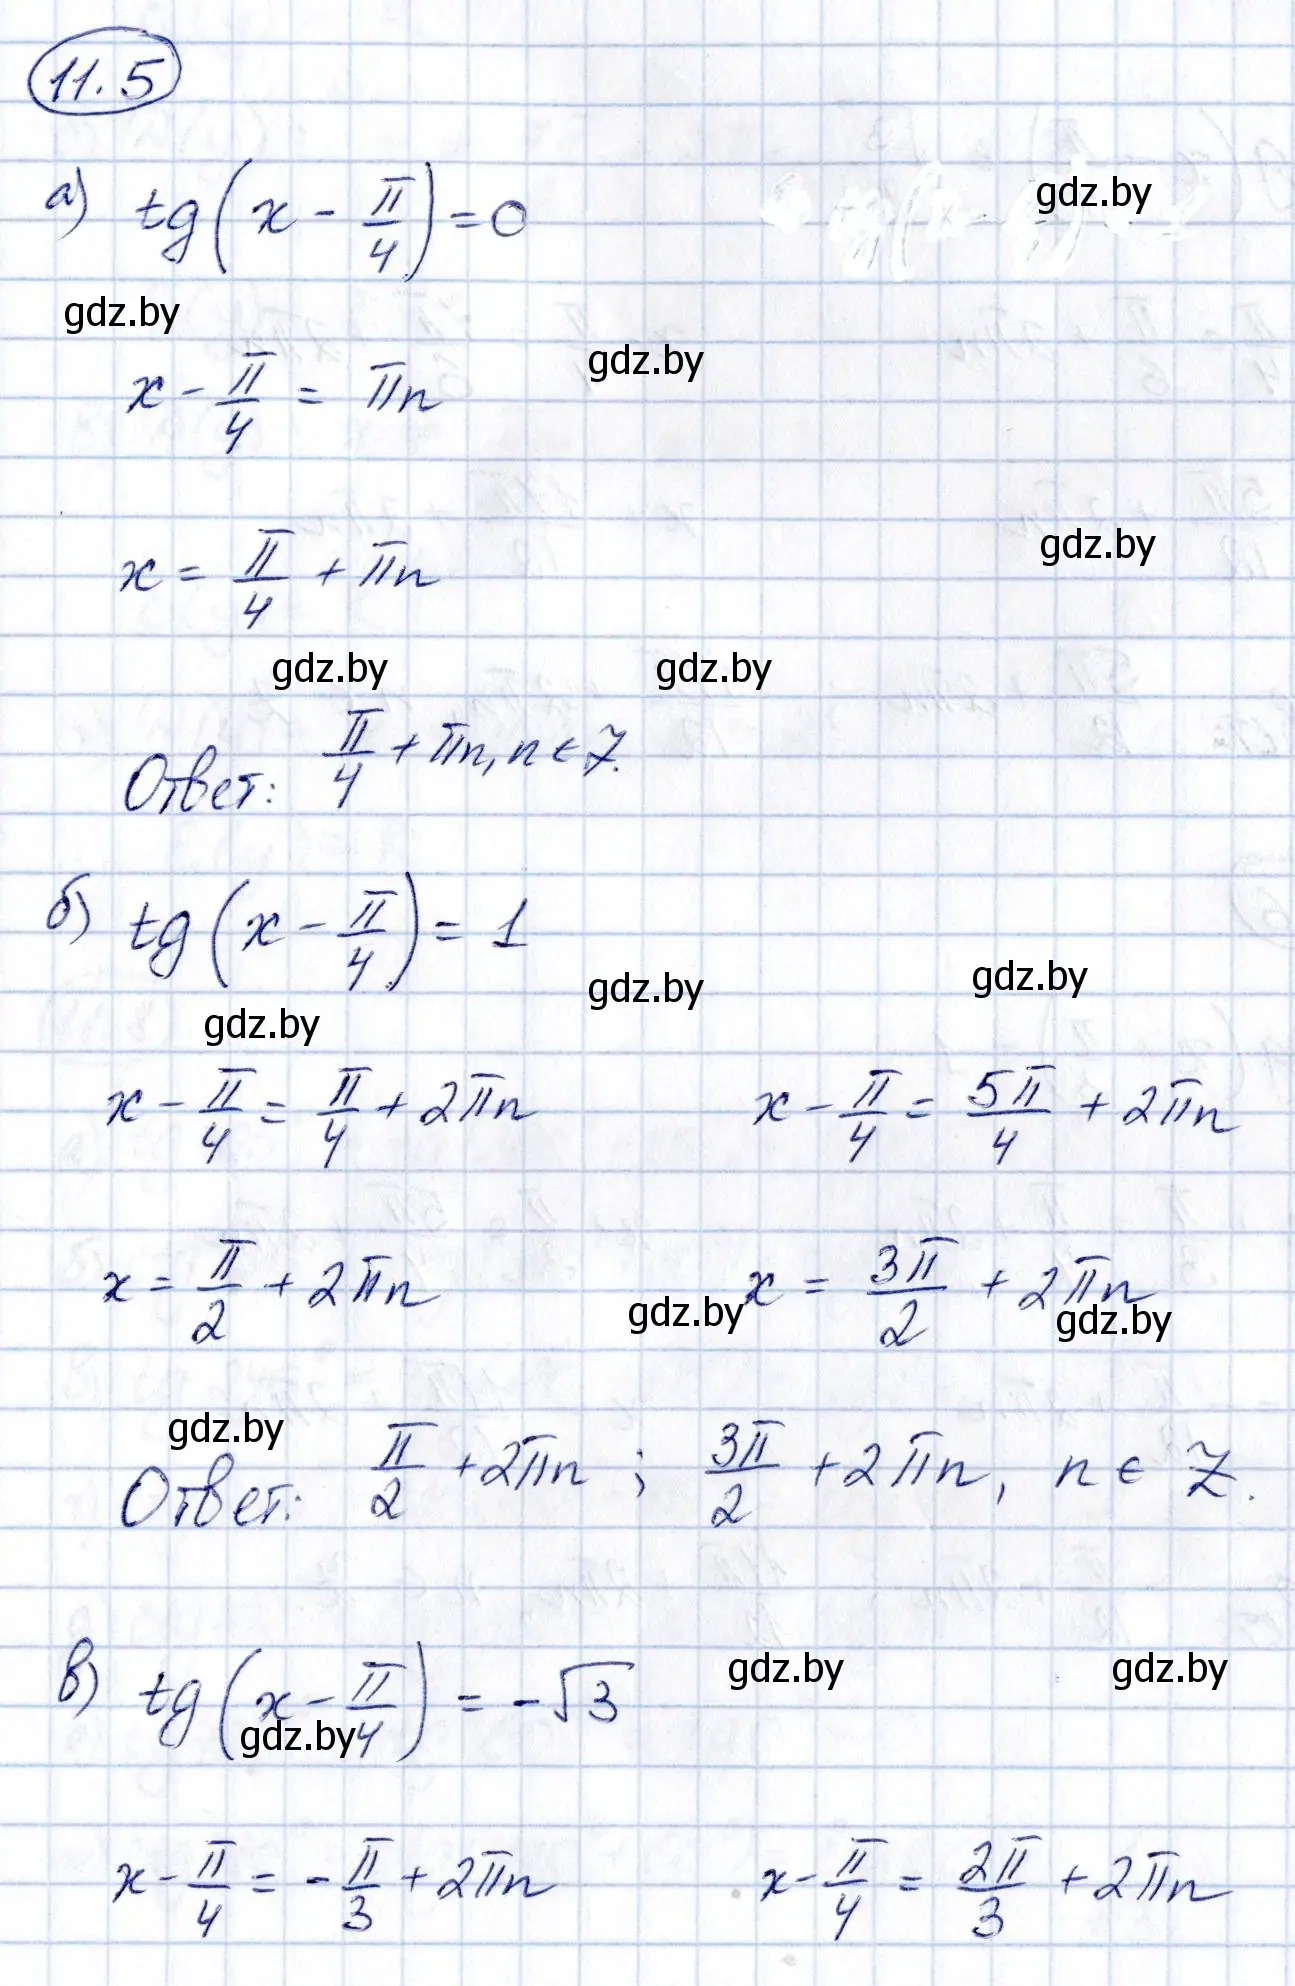 11.5
а) tg(x - π/4) = 0
gdz.by
gdz.by
gdz.by
x - π/4 = πn
gdz.by
x = π/4 + πn
gdz.by gdz.by
Ответ: π/4 + πn, n ∈ Z.
б) tg(x - π/4) = 1
gdz.by gdz.by
gdz.by
x - π/4 = π/4 + 2πn x - π/4 = 5π/4 + 2πn
x = π/2 + 2πn x = 3π/2 + 2πn
gdz.by gdz.by
gdz.by
Ответ: π/2 + 2πn ; 3π/2 + 2πn, n ∈ Z.
gdz.by gdz.by
в) tg(x - π/4) = -√3
gdz.by
x - π/4 = -π/3 + 2πn x - π/4 = 2π/3 + 2πn